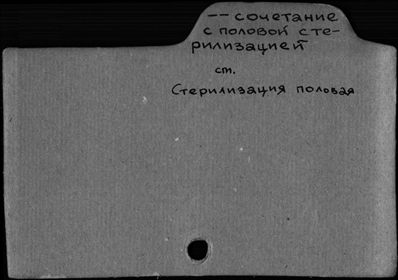 -- сочетание
с половой сте-
рилизацией
ст.
Стерилизация половая